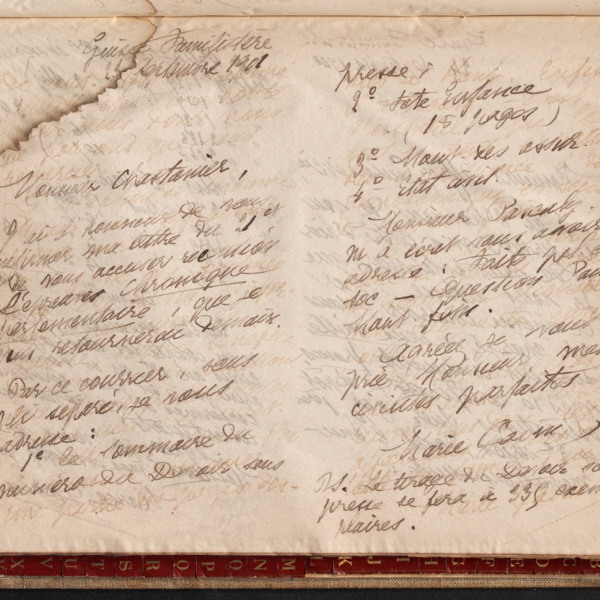 Guise Familistère
11 Septembre 1901
Monsieur Chastanier,
J'ai l'honneur de vous
confirmer ma lettre du 7 et
de vous accuser réception
d'épreuves Chronique
Parlementaire, que je
vous retournerai demain.
Par ce courrier, sous
pli séparé, je vous
adresse :
1º Le Sommaire du
numéro du Devoir sous
presse ;
2º Fête Enfance
(15 pages)
3º Mouv. des assur.
4º Etat civil.
Monsieur Pascaly
m'a écrit vous avoir
adressé : Faits pol.
soc — Question Paix
Mouv. fém.
Agréez je vous
prie Monsieur mes
civilités parfaites
Marie
P.S. Le tirage du Devoir sous
presse se fera à 335 exem-
plaires.
V U T S R Q P O N M L K J I H G F E D C B